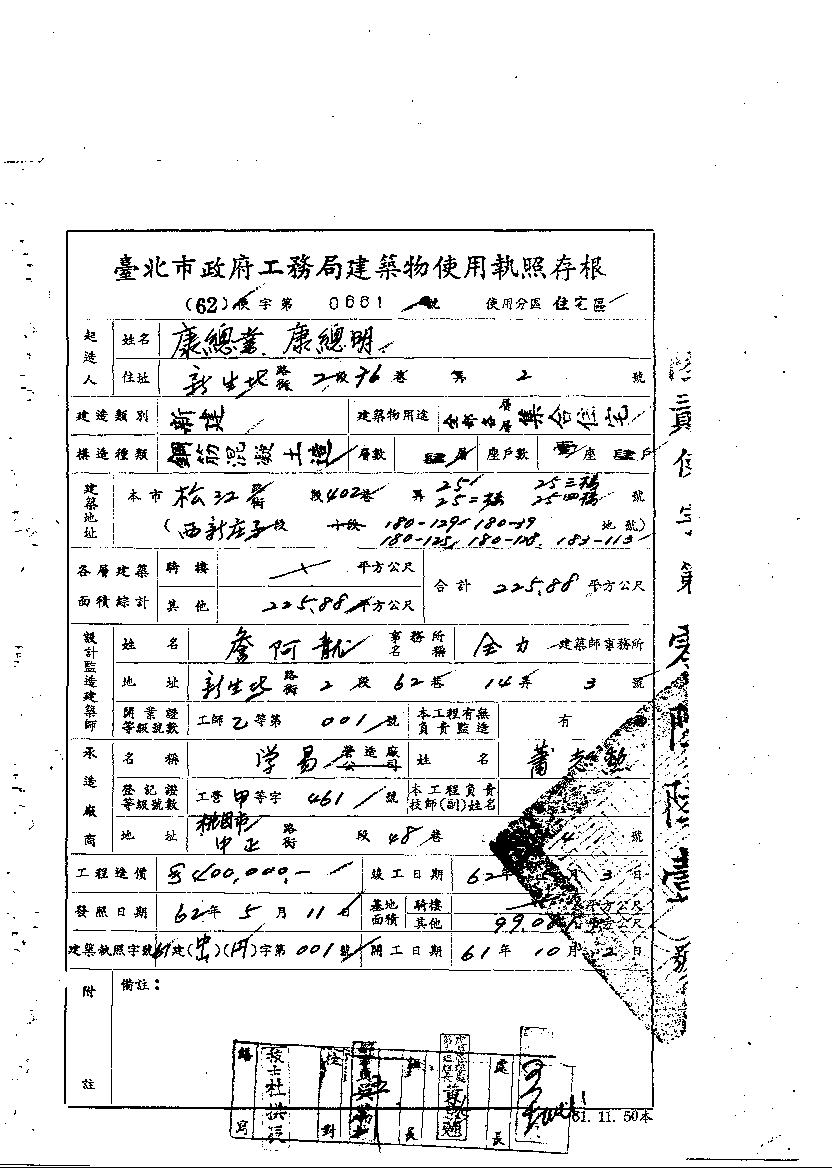 臺北市政府工務局建築物使用執照存根
(62)使字第 0661 號 使用分區 住宅區
起造人 姓名 康總業 康總明
住址 新生北路街 2段76巷 弄 2 號
建造類別 新建 建築物用途 全部各層層集合住宅
構造種類 鋼筋混凝土造 層數 層 座戶數 座 戶
建築地址 本市 松江路街 段402巷 弄 251 25三樓 25二樓 25四樓 號
(西新庄子段 小段 180-129 180-39 地號)
180-125, 180-128, 183-113
各層建築面積綜計 騎樓 平方公尺 合計 225.88 平方公尺
其他 225.88 平方公尺
設計監造建築師 姓名 詹阿龍 事務所名稱 全力 建築師事務所
地址 新生北路街 2段 62巷 14弄 3號
開業證等級號數 工師乙等第 001號 本工程有無負責監造 有
承造廠商 名稱 学易 營造廠公司 姓名 蕭志
登記證等級號數 工營甲等字 461 號 本工程負責技師(副)姓名
地址 桃園市中正路街 段 48巷 4 號
工程造價 400,000,- 竣工日期 62年 月3日
發照日期 62年5月11日 基地面積 騎樓 平方公尺
其他 99.0 平方公尺
建築執照字號 61建( )( )字第001號 開工日期 61年10月2日
附註 備註：
繕寫 校對 股長 處長
61.11.50本